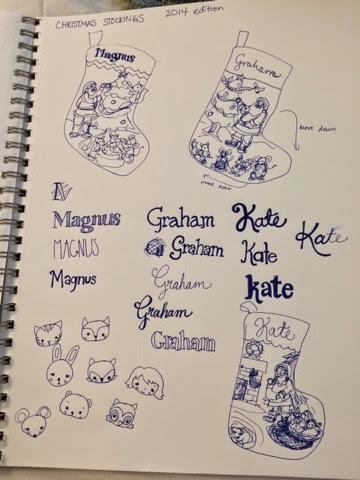 CHRISTMAS STOCKINGS 2014 edition
Magnus
Graham
move down
move over
M
Magnus Graham Kate Kate
MAGNUS G Graham Kate
Magnus Graham kate
Graham
Graham
Kate